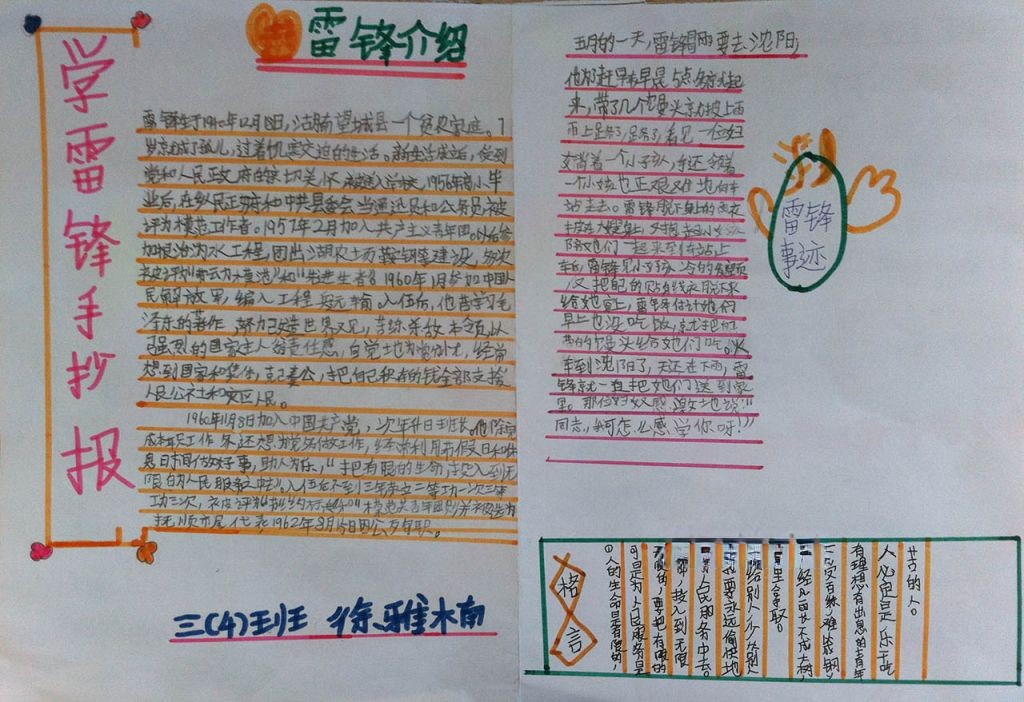 学雷锋手抄报
雷锋介绍
雷锋生于1940年12月18日，湖南望城县一个贫农家庭。7
岁就成了孤儿，过着饥寒交迫的生活。新生活成立后，受到
党和人民政府的亲切关怀被送入学校，1956年高小毕
业后，在乡民正府和中共县委会当通迅员和公务员被
评为模范工作者。1957年2月加入共产主义青年团。
加根治沩水工程，团山湖农场
和"先进生者"1960年1月参加中国
民解放军，编入工程 运输 入伍后，他苦学习毛
泽东的著作，努力改造世界又见，苦练杀敌本领，以
强烈的国家主人翁责任感，自觉地为党分忧，经常
想到国家和集体，克己奉公，把自己积存的钱全部支援
人民公社和灾区人民。
1960年11月8日加入中国共产党，次年升日班长。他除完
成本职工作 务还想为党多做工作，经常利用节假日和休
息日时间做好事，助人为乐，"把有限的生命注入到无
限的为人民服务之中去"。入伍后不到三年荣立二等功一次三等
功三次，被评为
抚顺市 代表1962年8月15日因公
三(4)班 徐雅木南
五月的一天，雷锋冒雨要去沈阳，
他为赶早车早晨5点多就起
来，带了几个馒头就披上雨
衣上路了，路上，看见一位妇
女背着一个小孩，手还领着
一个小女孩也正艰难地向车
站走去。雷锋脱下身上的雨衣
披在大嫂身上，又抱起小女孩
陪她们一起来到车站上
车后，雷锋见小女孩冷的发颤
又把自己的贴身线衣脱下来
给她穿上，雷锋估计她们
早上也没吃饭，就把自己
带的馒头给她们吃。火
车到沈阳了，天还在下雨，雷
锋就一直把她们送到家
里。那位妇女感激地说："
同志，我可怎么感学你呀！"
雷锋
事迹
格言
①人的生命是有限的，
可是为人民服务是
无限的，要把有限的
生命，投入到无限
的为人民服务中去。
②我要永远愉快地
多给别人，少从别人
那里拿取。
③不经风雨不成大树，
不受百练，难以成钢，
有理想有出息的青年
人必定是乐于吃
苦的人。